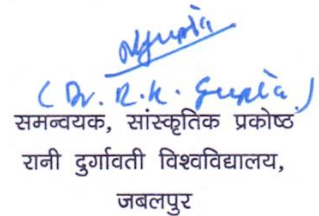 RGupta
(Dr. R.K. Gupta)
समन्वयक, सांस्कृतिक प्रकोष्ठ
रानी दुर्गावती विश्वविद्यालय,
जबलपुर